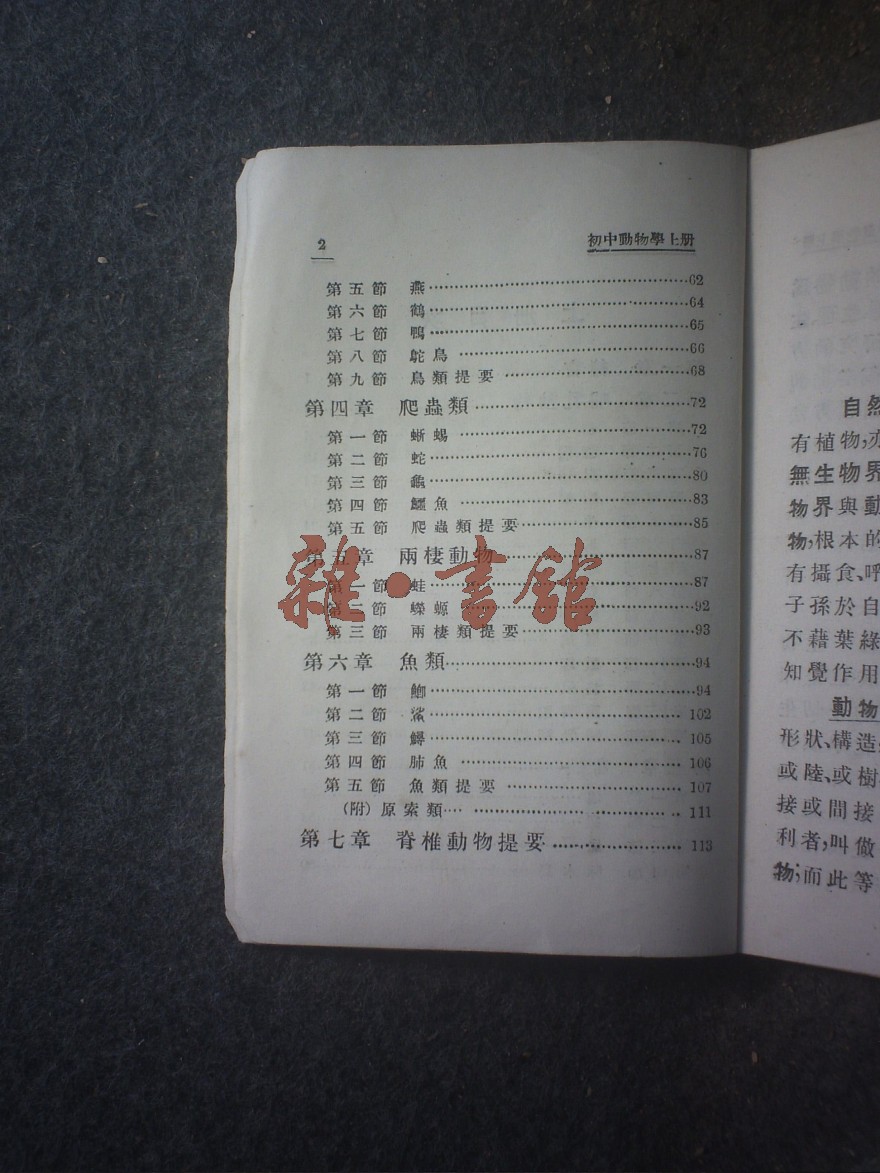 2
初中動物學上册
第五節 燕……62
第六節 鶴……64
第七節 鴨……65
第八節 鴕鳥……66
第九節 鳥類提要……68
第四章 爬蟲類……72
第一節 蜥蜴……72
第二節 蛇……76
第三節 龜……80
第四節 鱷魚……83
第五節 爬蟲類提要……85
第五章 兩棲動物……87
第一節 蛙……87
第二節 蠑螈……92
第三節 兩棲類提要……93
第六章 魚類……94
第一節 鯽……94
第二節 鯊……102
第三節 鱘……105
第四節 肺魚……106
第五節 魚類提要……107
(附)原索類……111
第七章 脊椎動物提要……113
雜·書館
自然
有植物,亦
無生物界
物界與動
物,根本的
有攝食、呼
子孫於自
不藉葉綠
知覺作用
動物
形狀、構造
或陸、或樹
接或間接
利者,叫做
物;而此等